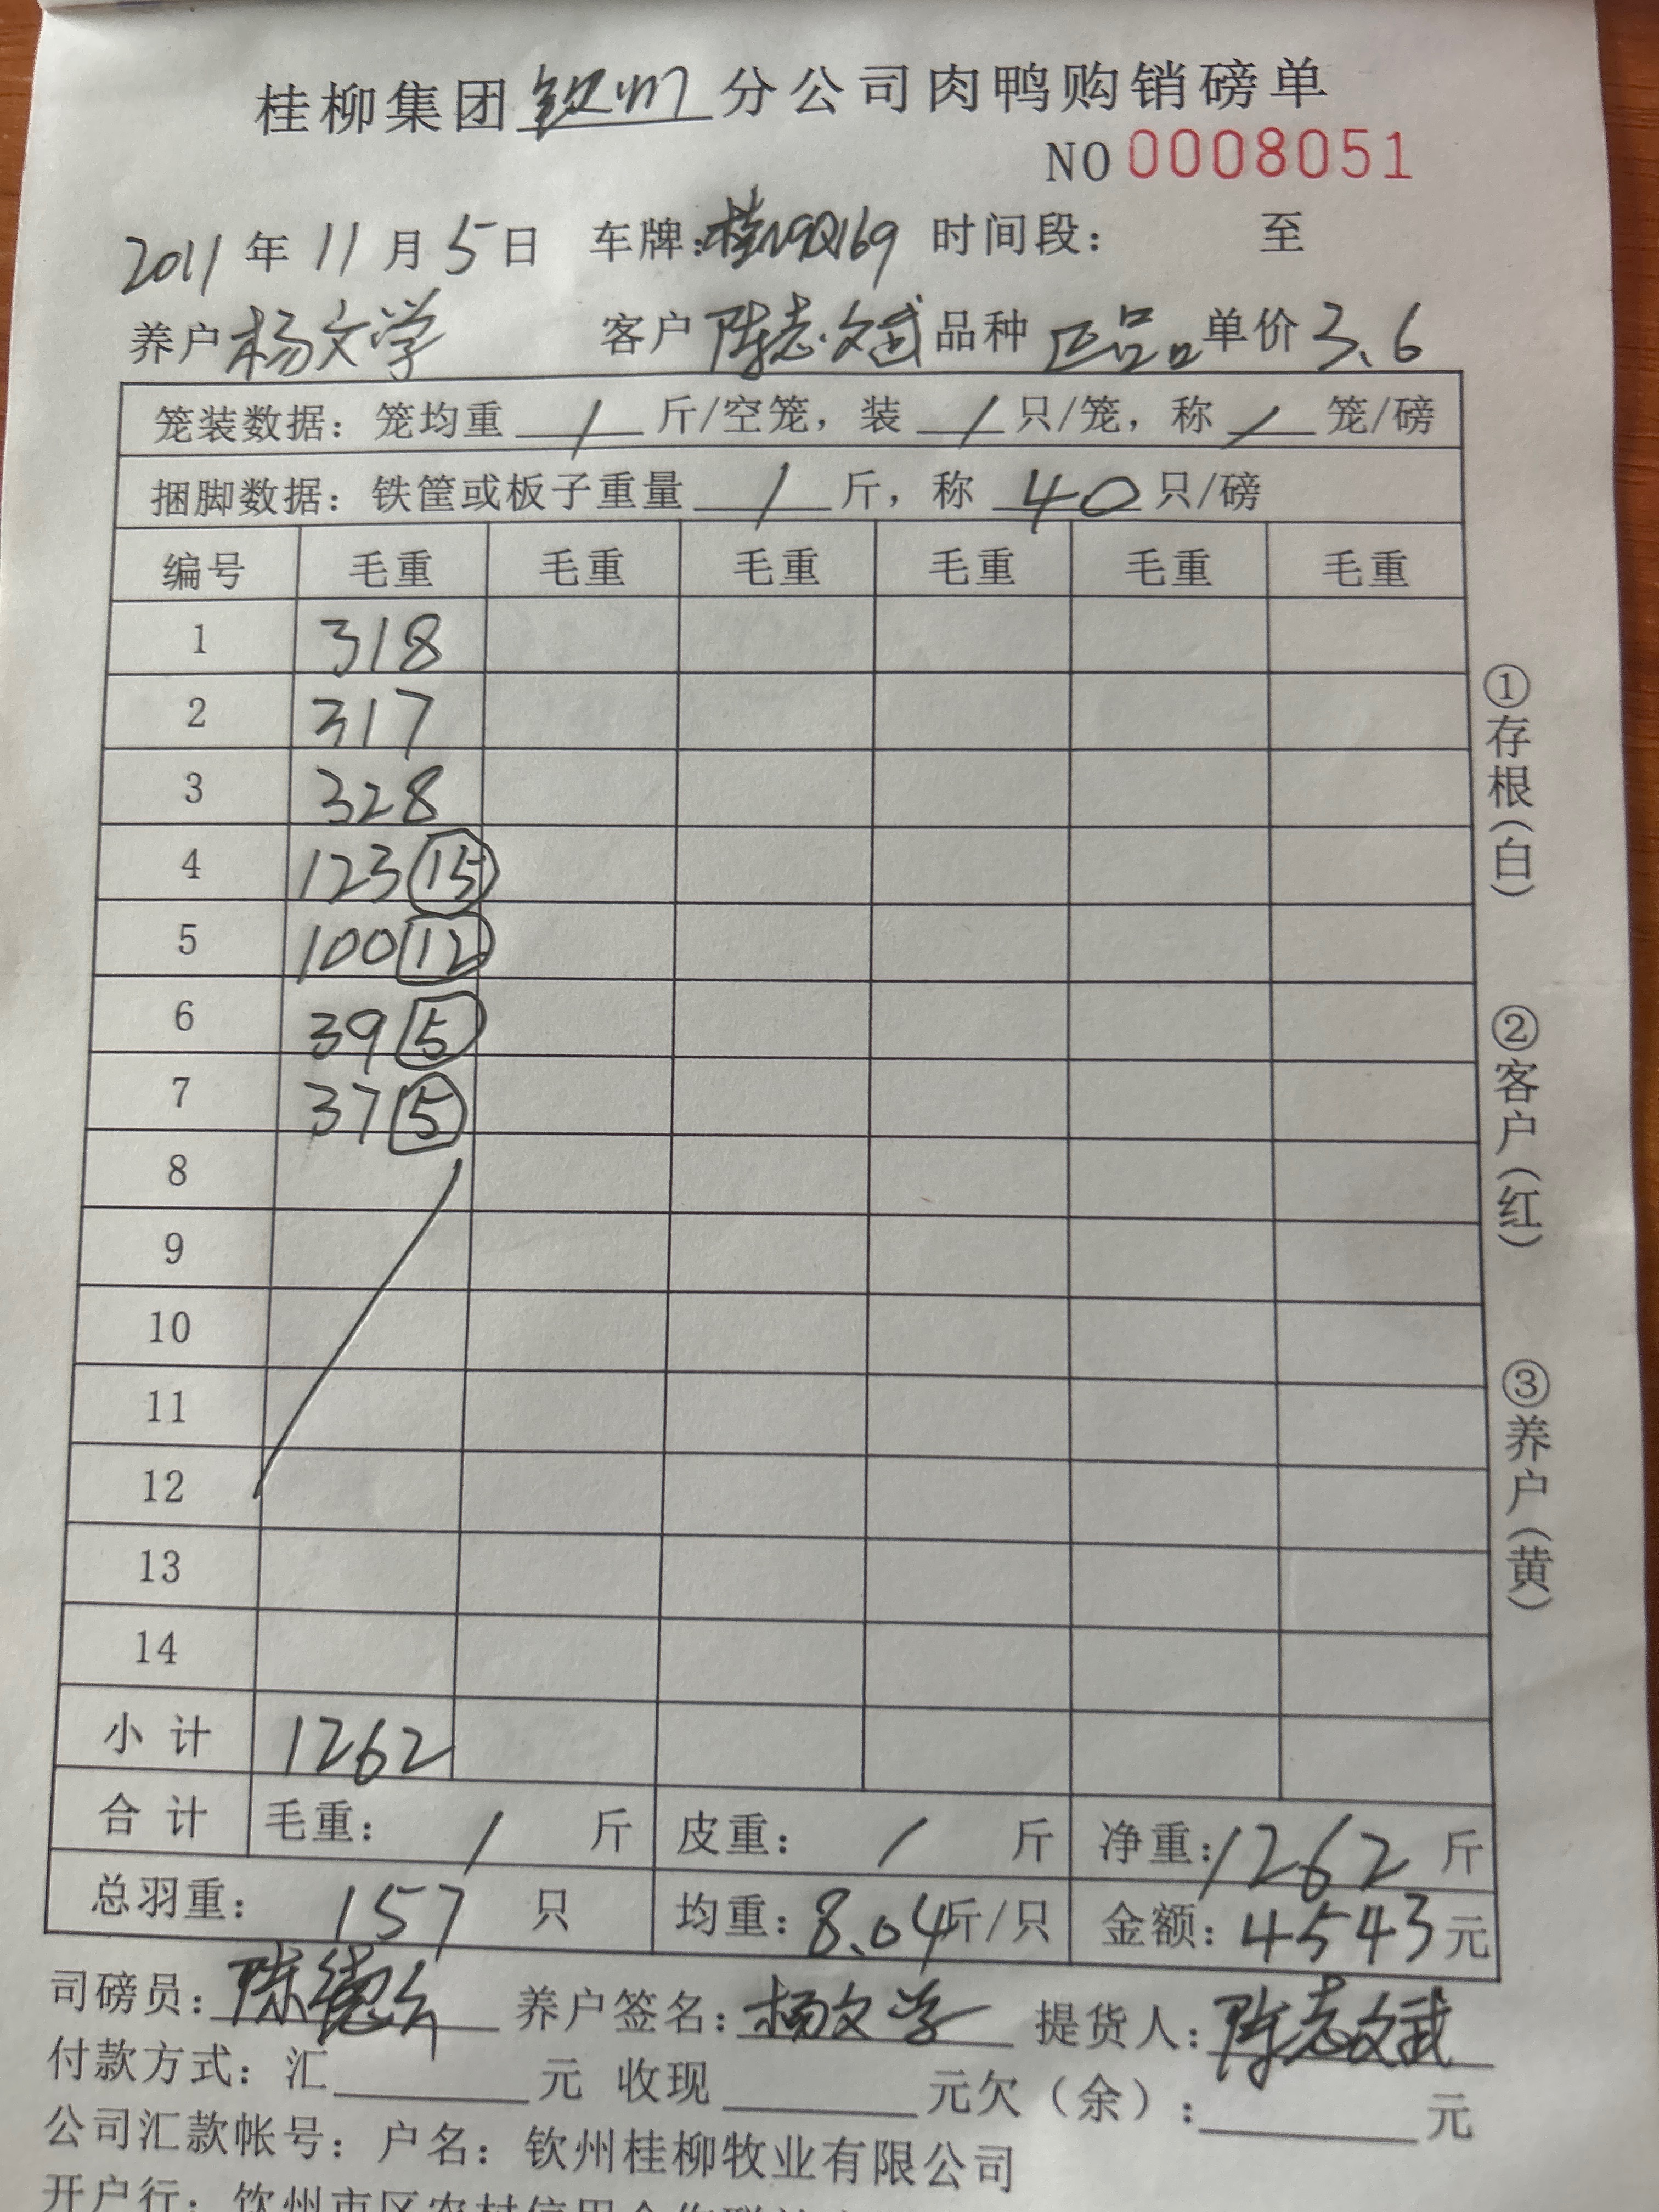 桂柳集团钦州分公司肉鸭购销磅单
NO 0008051
2011年11月5日 车牌:桂N9Q169 时间段: 至
养户杨文学 客户陈志斌品种正品单价3.6
笼装数据: 笼均重 / 斤/空笼, 装 / 只/笼, 称 / 笼/磅
捆脚数据: 铁筐或板子重量 / 斤, 称 40 只/磅
编号 毛重 毛重 毛重 毛重 毛重 毛重
1 318
2 317
3 328
4 123 ⑮
5 100 ⑫
6 39 ⑤
7 37 ⑤
8
9
10
11
12
13
14
小 计 1262
合 计 毛重: / 斤 皮重: / 斤 净重:1262 斤
总羽重: 157 只 均重:8.04斤/只 金额:4543元
司磅员:陈德 养户签名:杨文学 提货人:陈志斌
付款方式: 汇 元 收现 元欠(余): 元
公司汇款帐号: 户名: 钦州桂柳牧业有限公司
开户行: 钦州市区农村信用合作联社
①存根(白)
②客户(红)
③养户(黄)